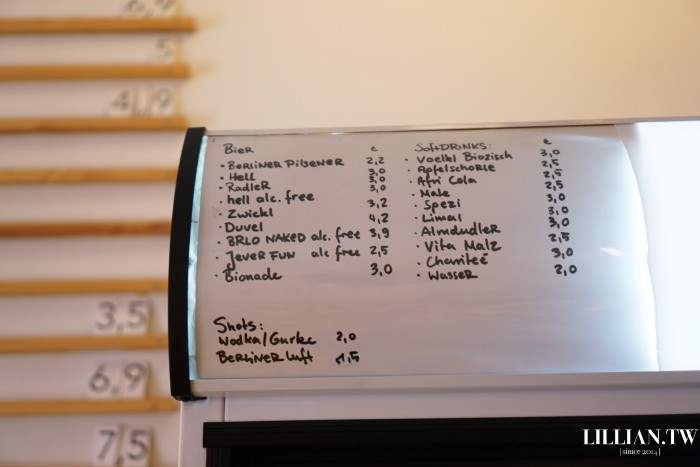 6,9
5
4,9
3,5
6,9
7,5
Bier €
· Berliner Pilsener 2,2
· Hell 3,0
· Radler 3,0
hell alc. free 3,0
· Zwickl 3,2
Duvel 4,2
· BRLO NAKED alc. free 3,9
· Jever FUN alc free 2,5
· Bionade 3,0
Shots:
Wodka/Gurke 2,0
Berliner Luft 1,5
SoftDRINKS: €
· Voelkl Biozisch 3,0
· Apfelschorle 2,5
· Afri Cola 2,5
· Mate 2,5
· Spezi 3,0
· Limal 3,0
· Almdudler 3,0
· Vita Malz 2,5
· Chariteé 3,0
· Wasser 2,0
LILLIAN.TW
| simce 2014 |